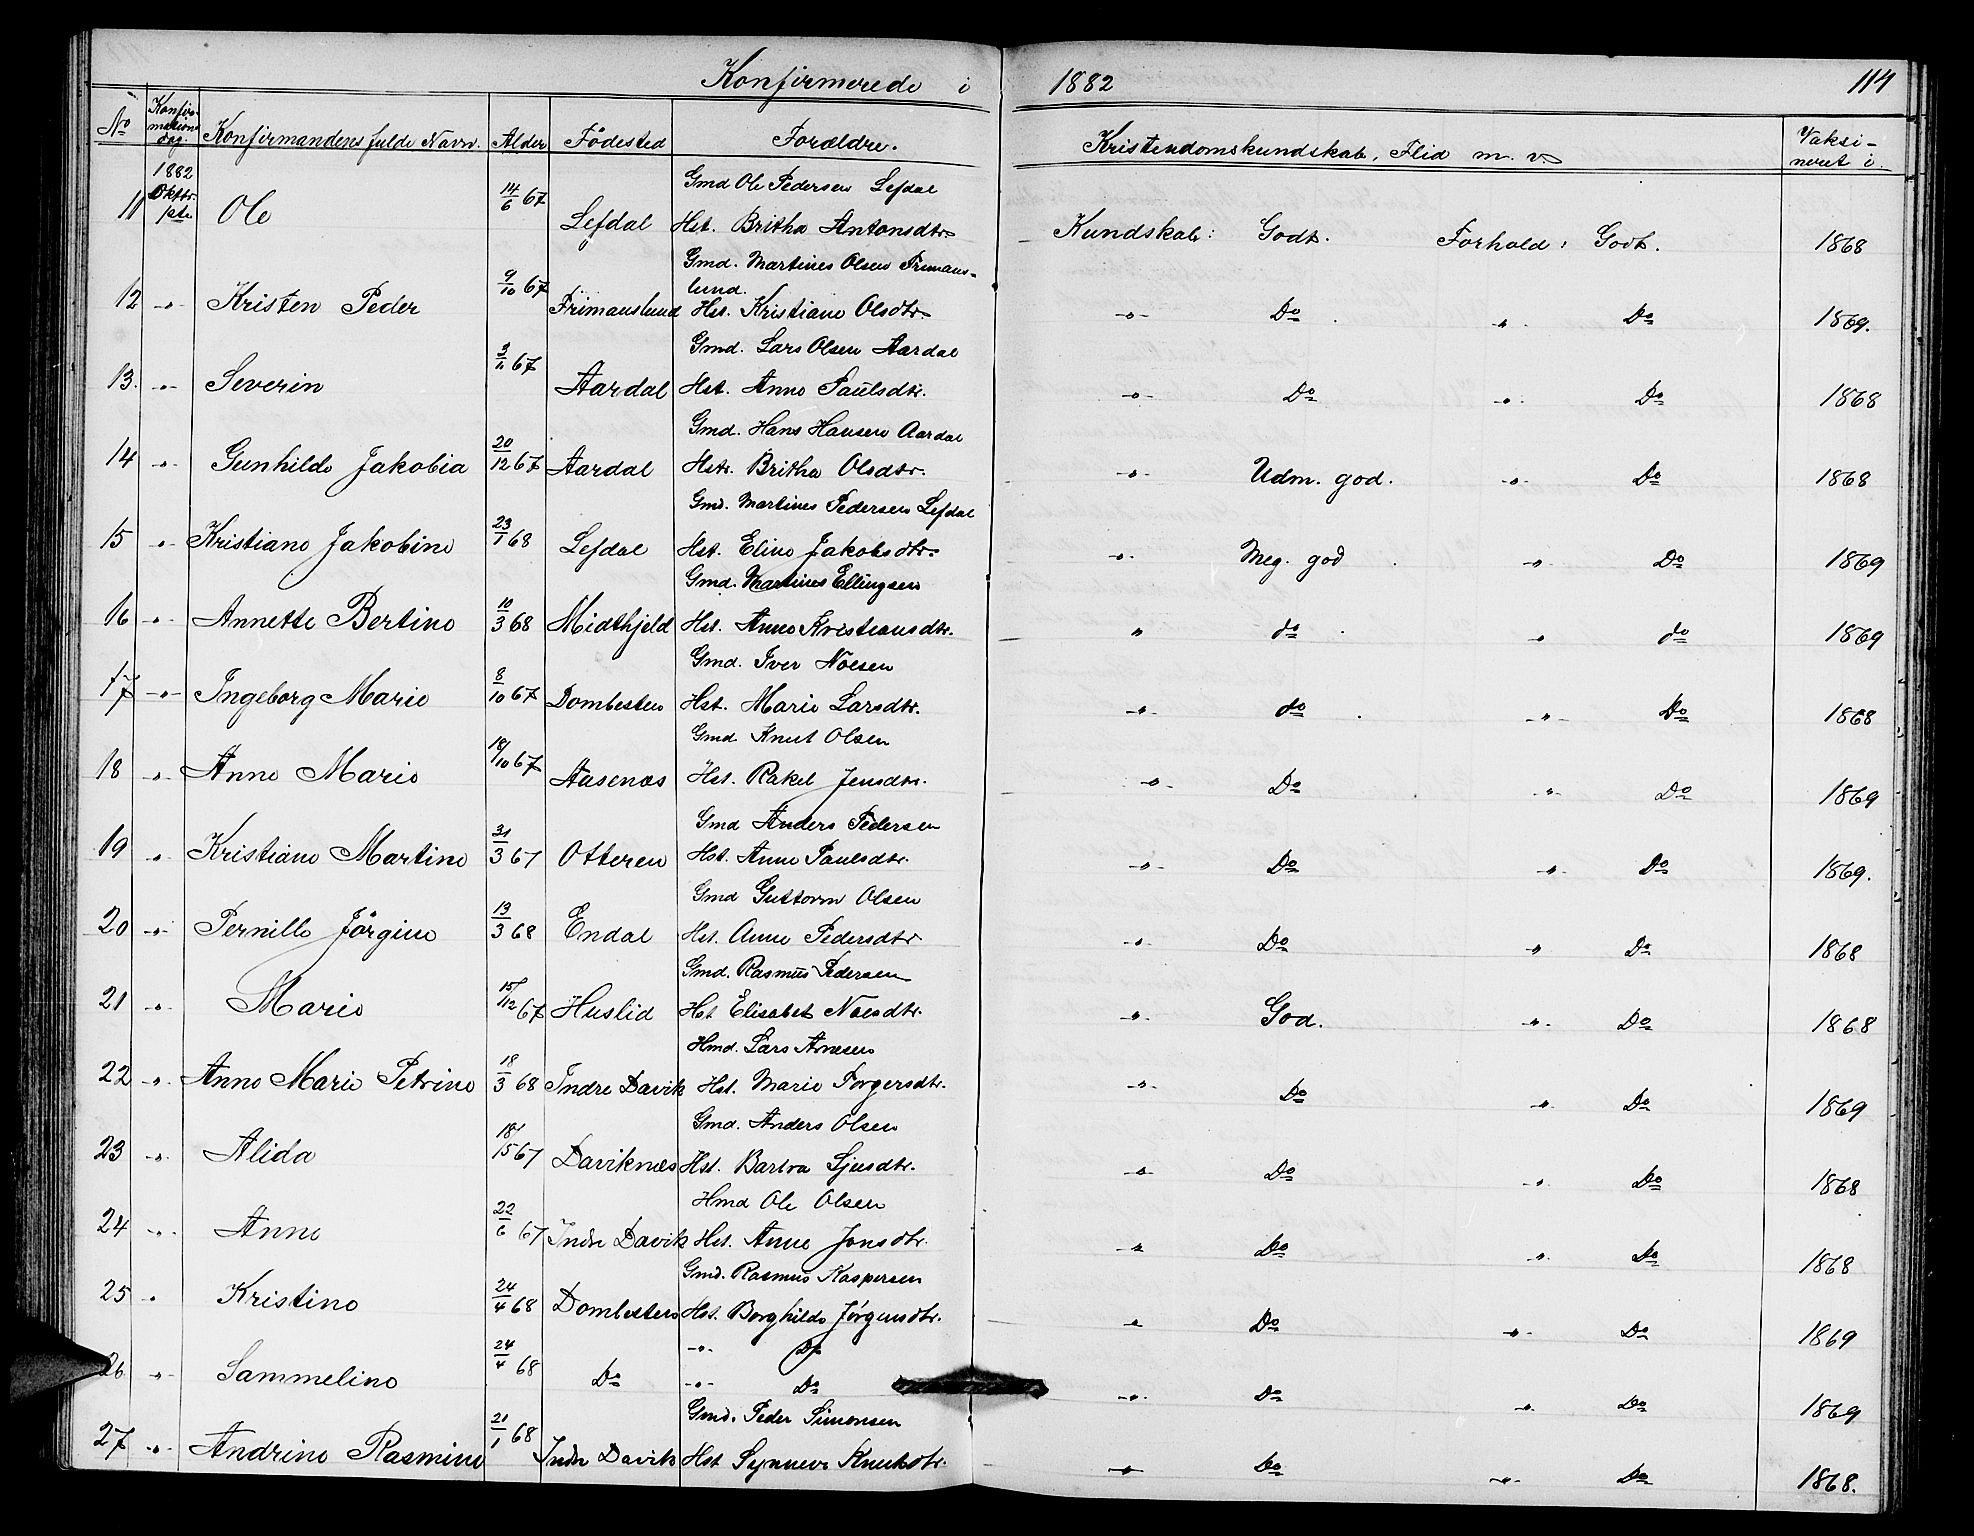 Konfirmerede i 1882 114
No Konfirmations Dag. Konfirmandens fulde Navn. Alder Födested Forældre. Kristendomskundskab, Flid m. v. Vaksineret i
1882 Oktbr. 1ste
Gmd Ole Pedersen Lefdal
11 Ole 14/6 67 Lefdal Hst. Britha Antonsdtr. Kundskab: Godt. Forhold: Godt. 1868
Gmd. Martines Olsen Frimanslund.
12 -"- Kristen Peder 9/10 67 Frimanslund Hst. Kristiane Olsdtr. -"- Do -"- Do 1869.
Gmd. Lars Olsen Aardal
13. -"- Severin 3/11 67 Aardal Hst. Anne Paulsdtr. -"- Do -"- Do 1868
Gmd. Hans Hansen Aardal
14 -"- Gunhilde Jakobia 20/12 67 Aardal Hstr. Britha Olsdtr. -"- Udm. god. -"- Do 1868
Gmd. Martines Pedersen Lefdal
15 -"- Kristiane Jakobine 23/1 68 Lefdal Hst. Eline Jakobsdtr. -"- Meg. god -"- Do 1869
Gmd. Martines Ellingsen
16 -"- Annette Bertine 10/3 68 Midthjeld Hst. Anne Kristiansdtr. " do " do 1869
Gmd. Iver Noesen
17 -"- Ingeborg Marie 8/10 67 Dombesten Hst. Marie Larsdtr. -"- do -"- Do 1868
Gmd Knut Olsen
18 -"- Anne Marie 18/10 67 Aasenæs Hst. Rakel Jensdtr. -"- Do -"- Do 1869
Gmd Anders Pedersen
19 -"- Kristiane Martine 31/3 67 Otteren Hst. Anne Paulsdtr. -"- Do -"- Do 1869.
Gmd Guttorm Olsen
20 -"- Pernille Jörgine 13/3 68 Endal Hst. Anne Pedersdtr -"- Do -"- Do 1868
Gmd. Rasmus Pedersen
21 -"- Marie 15/12 67 Huslid Hst Elisabet Noesdtr. -"- God. -"- Do 1868
Hmd. Lars Arnesen
22 -"- Anne Marie Petrine 18/3 68 Indre Davik Hst. Marie Torgersdtr. -"- Do -"- Do 1869
Gmd. Anders Olsen
23 -"- Alida 67 Daviknæs Hst. Bartra Sjusdtr. -"- Do -"- Do 1868
Hmd Ole Olsen
24 -"- Anne 22/6 67 Indre Davik Hst. Anne Jonsdtr. -"- Do -"- Do 1868
Gmd. Rasmus Kaspersen
25 " Kristine 24/4 68 Dombesten Hst. Borghilde Jörgensdtr. -"- Do -"- Do 1869
-"- Do
26 -"- Sammeline 24/4 68 Do -"- Do -"- Do -"- Do 1869
Gmd. Peder Simonsen
27 -"- Andrine Rasmine 21/1 68 Indre Davik Hst Synneve Knutsdtr. -"- Do -"- Do 1868.